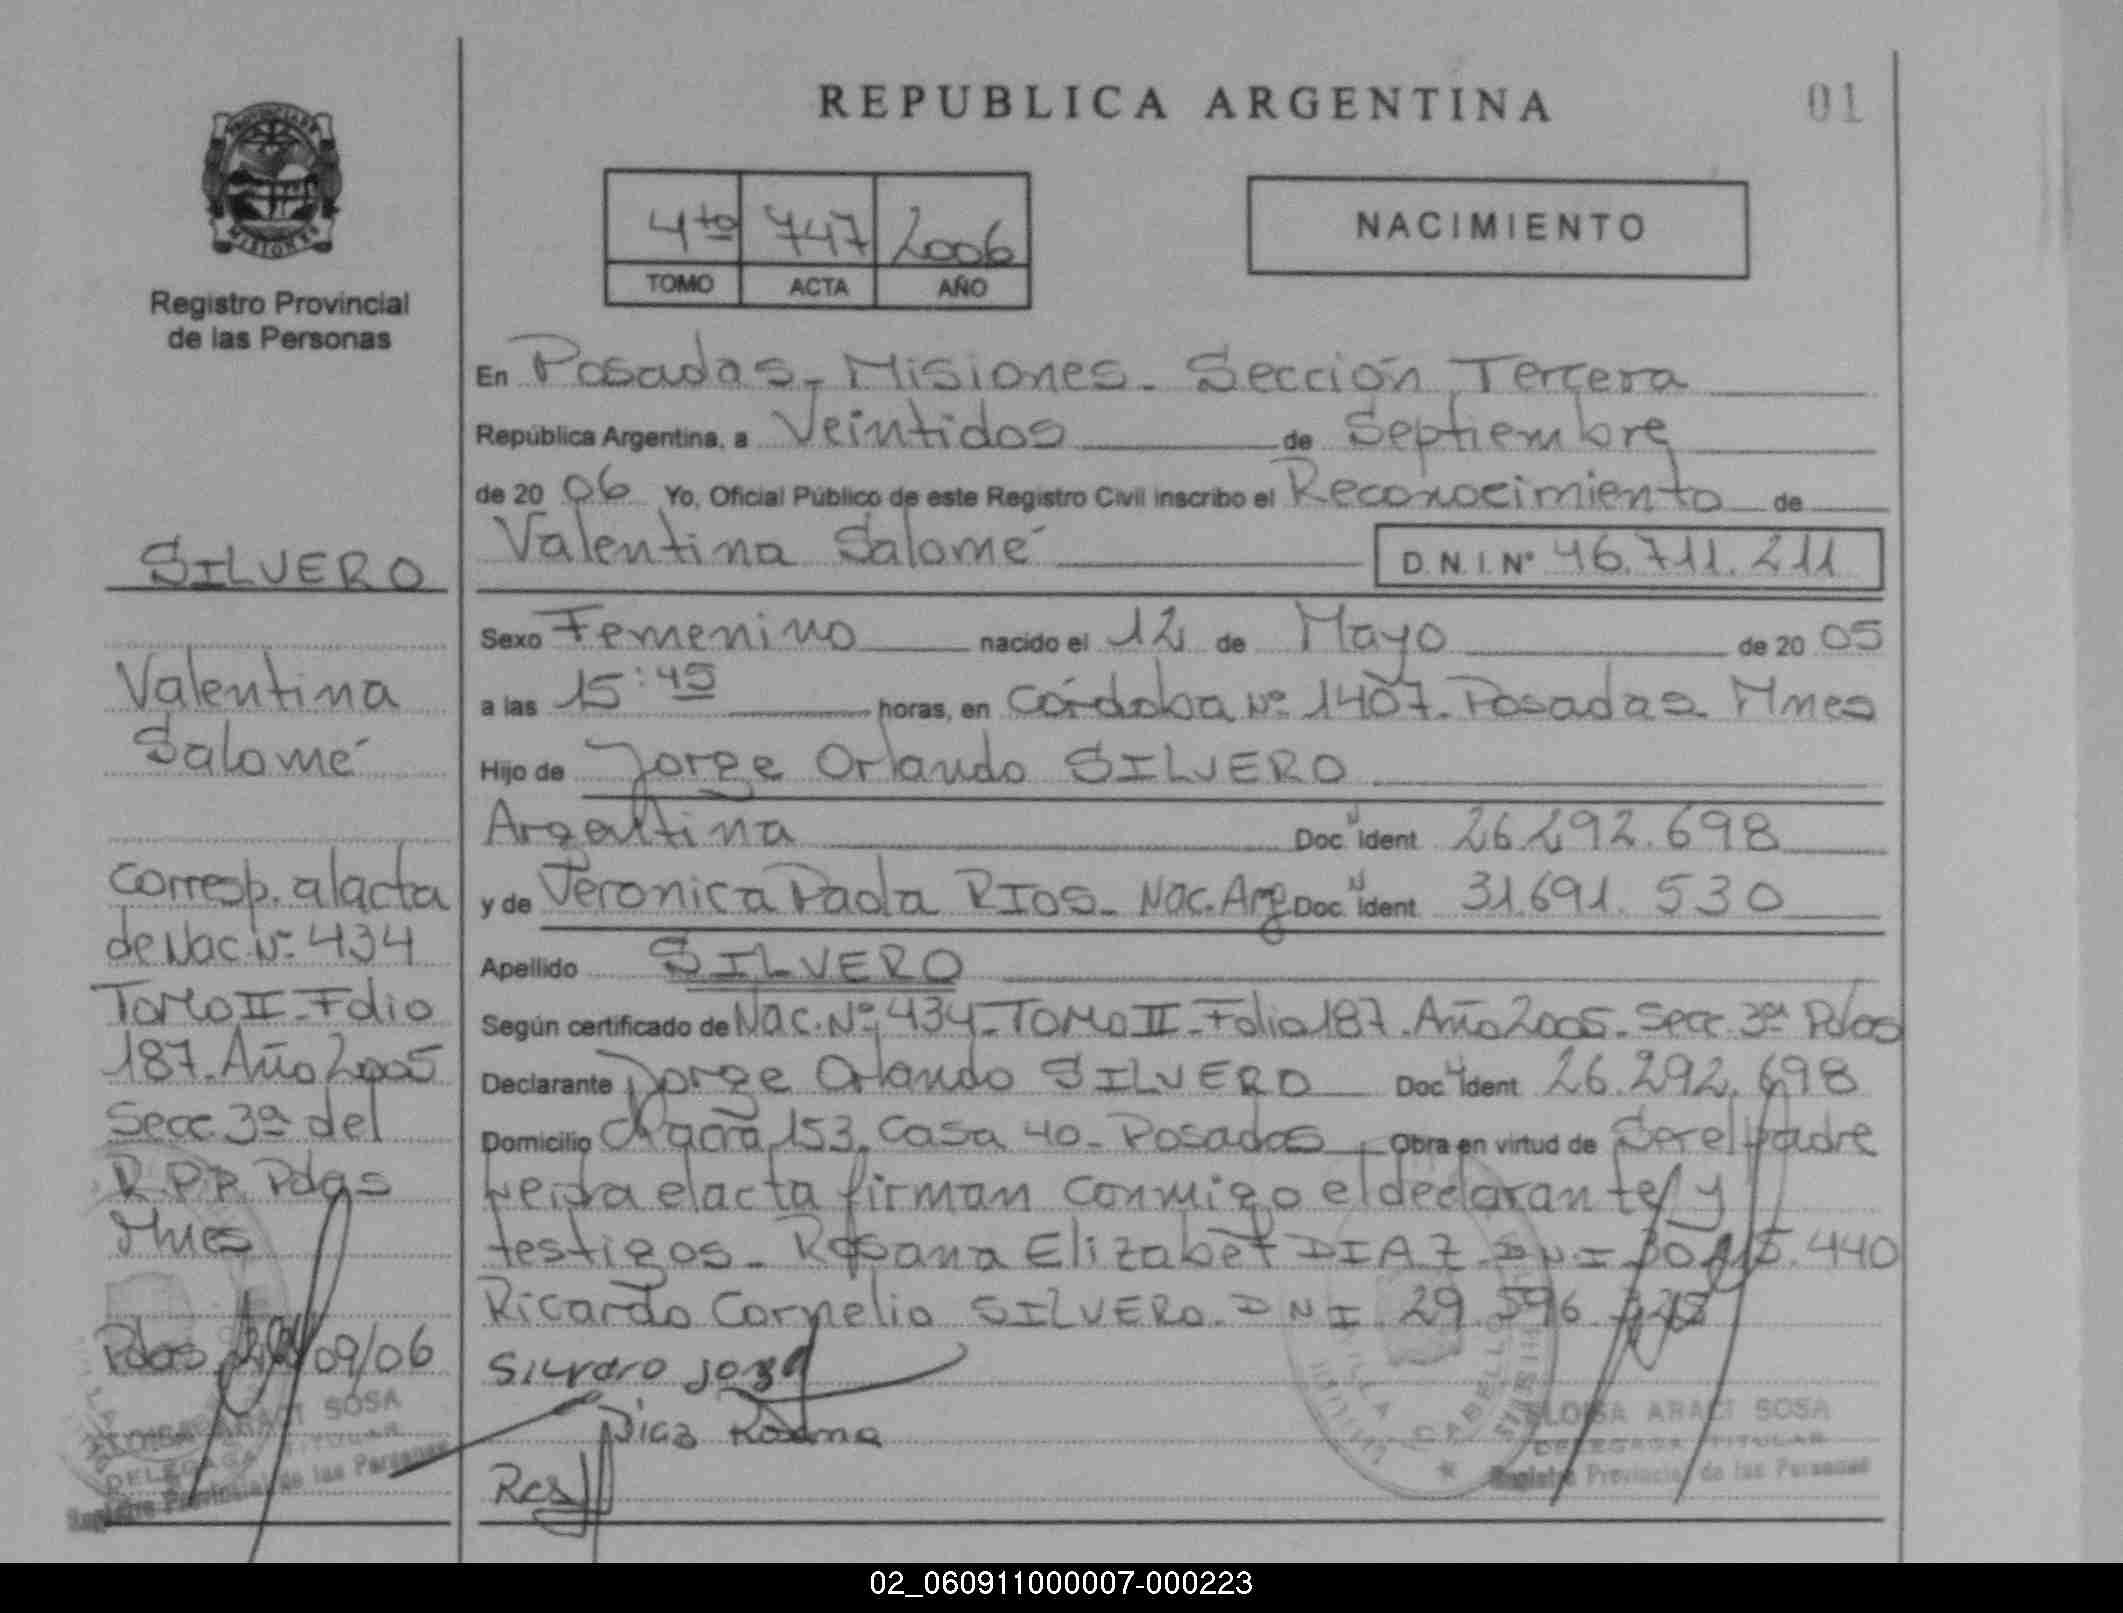 REPUBLICA ARGENTINA
01
PROVINCIA DE
MISIONES
Registro Provincial
de las Personas
4to 747 2006
TOMO ACTA AÑO
NACIMIENTO
En Posadas - Misiones - Sección Tercera
República Argentina, a Veintidos de Septiembre
de 20 06 Yo, Oficial Público de este Registro Civil inscribo el Reconocimiento de
Valentina Salomé D.N.I.Nº 46.711.211
Sexo Femenino nacido el 12 de Mayo de 20 05
a las 15:45 horas, en Córdoba Nº 1407. Posadas Mnes
Hijo de Jorge Orlando SILVERO
Argentina Doc. Ident 26.292.698
y de Veronica Paola RIOS - Nac. Arg Doc. Ident 31.691.530
Apellido SILVERO
Según certificado de Nac. Nº 434 - Tomo II - Folio 187. Año 2005 - Secc. 3ª Pdas
Declarante Jorge Orlando SILVERO Doc. Ident 26.292.698
Domicilio Chacra 153. Casa 40 - Posadas Obra en virtud de Ser el padre
Leida el acta firman conmigo el declarante y
testigos - Rosana Elizabet DIAZ - DNI 440
Ricardo Cornelio SILVERO - DNI 29.596.
Silvero Jorge
Diaz Rosana
SILVERO
Valentina
Salomé
Corresp. al acta
de Nac. Nº 434
Tomo II - Folio
187. Año 2005
Secc. 3ª del
R.P.P. Pdas
Mnes
Pdas 09/06
ELOISA ARACI SOSA
DELEGADA TITULAR
Registro Provincial de las Personas
VILLA CABELLO
ELOISA ARACI SOSA
DELEGADA TITULAR
Registro Provincial de las Personas
02_060911000007-000223